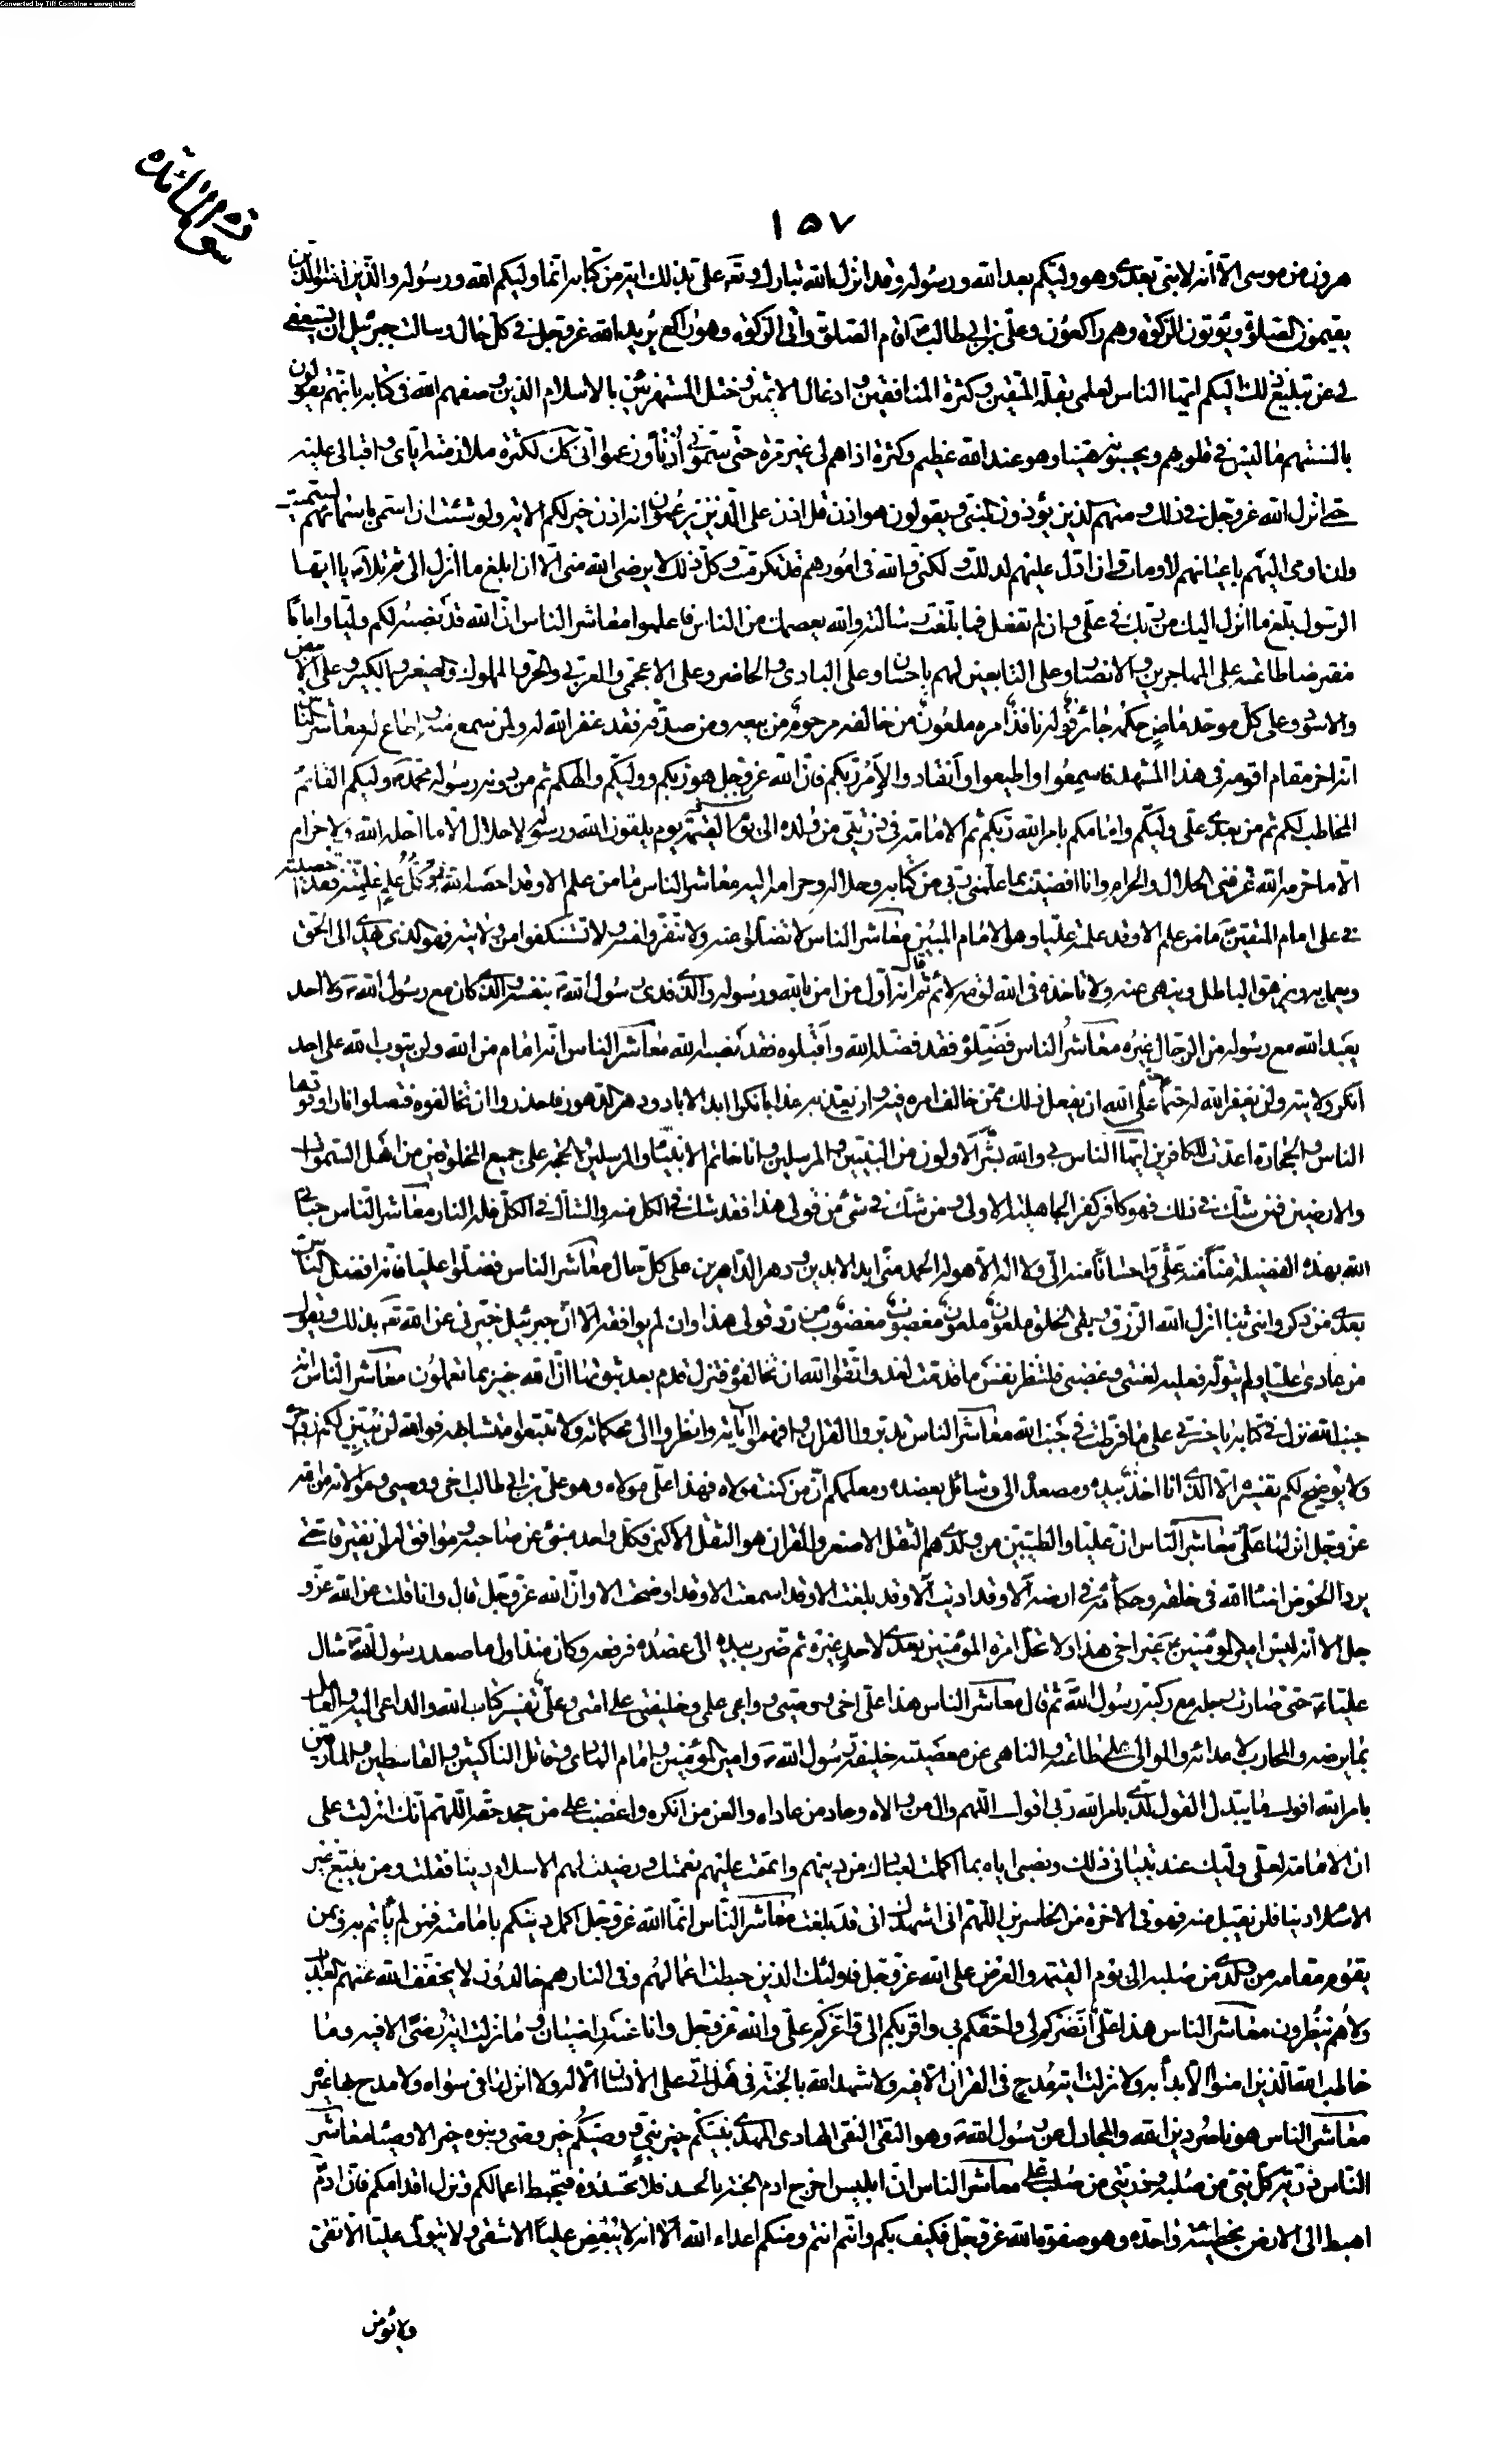 Converted by Tiff Combine - unregistered
سورة المائدة
١٥٧
هرون من موسى الا انه لا نبي بعدي وهو وليكم بعد الله ورسوله وقد انزل الله تبارك وتعه على بذلك اية من كتابه انما وليكم الله ورسوله والذين امنوا الذين
يقيمون الصلوة ويؤتون الزكوة وهم راكعون وعلي بن ابي طالب ع اقام الصلوة واتى الزكوة وهو راكع يريد الله عز وجل في كل حال وسالت جبرئيل ان يستعفي
لي عن تبليغ ذلك اليكم ايها الناس لعلمي بقلة المتقين وكثرة المنافقين وادغال الاثمين وختل المستهزئين بالاسلام الذين وصفهم الله في كتابه بانهم يقولون
بالسنتهم ما ليس في قلوبهم ويحسبونه هينا وهو عند الله عظيم وكثرة اذاهم لي غير مرة حتى سموني اذنا وزعموا اني كك لكثرة ملازمته اياي واقبالي عليه
حتى انزل الله عز وجل في ذلك ومنهم الذين يؤذون النبي ويقولون هو اذن قل اذن على الذين يزعمون انه اذن خير لكم الاية ولو شئت ان اسمي باسمائهم لسميت
وان اومي اليهم باعيانهم لاومات وان ادل عليهم لدللت ولكني والله في امورهم قد تكرمت وكل ذلك لا يرضى الله مني الا ان ابلغ ما انزل الي ثم تلا ص يا ايها
الرسول بلغ ما انزل اليك من ربك في علي وان لم تفعل فما بلغت رسالته والله يعصمك من الناس فاعلموا معاشر الناس ان الله قد نصبه لكم وليا واماما
مفترضا طاعته على المهاجرين والانصار وعلى التابعين لهم باحسان وعلى البادي والحاضر وعلى الاعجمي والعربي والحر والمملوك والصغير والكبير وعلى الابيض
والاسود وعلى كل موحد ماض حكمه جائز قوله نافذ امره ملعون من خالفه مرحوم من تبعه ومن صدقه فقد غفر الله له ولمن سمع منه واطاع له معاشر الناس
انه اخر مقام اقومه في هذا المشهد فاسمعوا واطيعوا وانقادوا لامر ربكم فان الله عز وجل هو ربكم ووليكم والهكم ثم من دونه رسوله محمد ص وليكم القائم
المخاطب لكم ثم من بعدي علي وليكم وامامكم بامر الله ربكم ثم الامامة في ذريتي من ولده الى يوم القيمة يوم يلقون الله ورسوله لا حلال الا ما احله الله ولا حرام
الا ما حرمه الله عرفني الحلال والحرام وانا افضيت بما علمني ربي من كتابه وحلاله وحرامه اليه معاشر الناس ما من علم الا وقد احصاه الله في وكل علم علمته فقد احصيته
في علي امام المتقين ما من علم الا وقد علمته عليا وهو الامام المبين معاشر الناس لا تضلوا عنه ولا تنفروا منه ولا تستنكفوا من ولايته فهو الذي يهدي الى الحق
ويعمل به ويزهق الباطل وينهى عنه ولا تاخذه في الله لومة لائم ثم قال انه اول من امن بالله ورسوله والذي فدى رسول الله ص بنفسه والذي كان مع رسول الله ص ولا احد
يعبد الله مع رسوله من الرجال غيره معاشر الناس فضلوه فقد فضله الله واقبلوه فقد نصبه الله معاشر الناس انه امام من الله ولن يتوب الله على احد
انكر ولايته ولن يغفر الله له حتما على الله ان يفعل ذلك ممن خالف امره فيه وان يعذبه عذابا نكرا ابد الاباد ودهر الدهور فاحذروا ان تخالفوه فتصلوا نارا وقودها
الناس والحجارة اعدت للكافرين ايها الناس بي والله بشر الاولون من النبيين والمرسلين وانا خاتم الانبياء والمرسلين والحجة على جميع المخلوقين من اهل السموات
والارضين فمن شك في ذلك فهو كافر كفر الجاهلية الاولى ومن شك في شيء من قولي هذا فقد شك في الكل منه والشاك في الكل فله النار معاشر الناس حباني
الله بهذه الفضيلة منا منه علي واحسانا منه الي ولا اله الا هو له الحمد مني ابد الابدين ودهر الداهرين على كل حال معاشر الناس فضلوا عليا فانه افضل الناس
بعدي من ذكر وانثى بنا انزل الله الرزق وبقي الخلق ملعون ملعون مغضوب مغضوب من رد قولي هذا وان لم يوافقه الا ان جبرئيل خبرني عن الله تعه بذلك ويقول
من عادى عليا ولم يتوله فعليه لعنتي وغضبي فلتنظر نفس ما قدمت لغد واتقوا الله ان تخالفوه فتزل قدم بعد ثبوتها ان الله خبير بما تعملون معاشر الناس انه
جنب الله نزل في كتابه يا حسرتي على ما فرطت في جنب الله معاشر الناس تدبروا القران وافهموا اياته وانظروا الى محكماته ولا تتبعوا متشابهه فوالله لن يبين لكم زواجره
ولا يوضح لكم تفسيره الا الذي انا اخذ بيده ومصعده الي وشائل بعضده ومعلمكم ان من كنت مولاه فهذا علي مولاه وهو علي بن ابي طالب اخي ووصيي وموالاته من الله
عز وجل انزلها علي معاشر الناس ان عليا والطيبين من ولدي هم الثقل الاصغر والقران هو الثقل الاكبر فكل واحد منبئ عن صاحبه وموافق له لن يفترقا حتى
يردا الحوض امناء الله في خلقه وحكامه في ارضه الا وقد اديت الا وقد بلغت الا وقد اسمعت الا وقد اوضحت الا وان الله عز وجل قال وانا قلت عن الله عز و
جل الا انه ليس امير المؤمنين ع غير اخي هذا ولا تحل امرة المؤمنين بعدي لاحد غيره ثم ضرب بيده الى عضده فرفعه وكان منذ اول ما صعد رسول الله ص شال
عليا ع حتى صارت رجله مع ركبة رسول الله ص ثم قال معاشر الناس هذا علي اخي ووصيي وواعي علمي وخليفتي على امتي وعلى تفسير كتاب الله والداعي اليه والعامل
بما يرضه والمحارب لاعدائه والموالي على طاعته والناهي عن معصيته خليفة رسول الله ص وامير المؤمنين وامام الهادي وقاتل الناكثين والقاسطين والمارقين
بامر الله اقول ما يبدل القول لدي بامر الله ربي اقول اللهم وال من والاه وعاد من عاداه والعن من انكره واغضب على من جحد حقه اللهم انك انزلت علي
ان الامامة لعلي وليك عند تبياني ذلك ونصبي اياه بما اكملت لعبادك من دينهم واتممت عليهم نعمتك ورضيت لهم الاسلام دينا فقلت ومن يبتغ غير
الاسلام دينا فلن يقبل منه وهو في الاخرة من الخاسرين اللهم اني اشهدك اني قد بلغت معاشر الناس انما الله عز وجل اكمل دينكم بامامته فمن لم ياتم به وبمن
يقوم مقامه من ولدي من صلبه الى يوم القيمة والعرض على الله عز وجل فاولئك الذين حبطت اعمالهم وفي النار هم خالدون لا يخفف الله عنهم العذاب
ولا هم ينظرون معاشر الناس هذا علي انصركم لي واحقكم بي واقربكم الي واعزكم علي والله عز وجل وانا عنه راضيان وما نزلت اية رضى الا فيه وما
خاطب الله الذين امنوا الا بدأ به ولا نزلت اية مدح في القران الا فيه ولا شهد الله بالجنة في هل اتى على الانسان الا له ولا انزلها في سواه ولا مدح بها غيره
معاشر الناس هو ناصر دين الله والمجادل عن رسول الله ص وهو التقي النقي الهادي المهدي نبيكم خير نبي ووصيكم خير وصي وبنوه خير الاوصياء معاشر
الناس ذرية كل نبي من صلبه وذريتي من صلب علي معاشر الناس ان ابليس اخرج ادم الجنة بالحسد فلا تحسدوه فتحبط اعمالكم وتزل اقدامكم فان ادم
اهبط الى الارض بخطيئة واحدة وهو صفوة الله عز وجل فكيف بكم وانتم انتم ومنكم اعداء الله الا انه لا يبغض عليا الا شقي ولا يتولى عليا الا تقي
ولا يؤمن